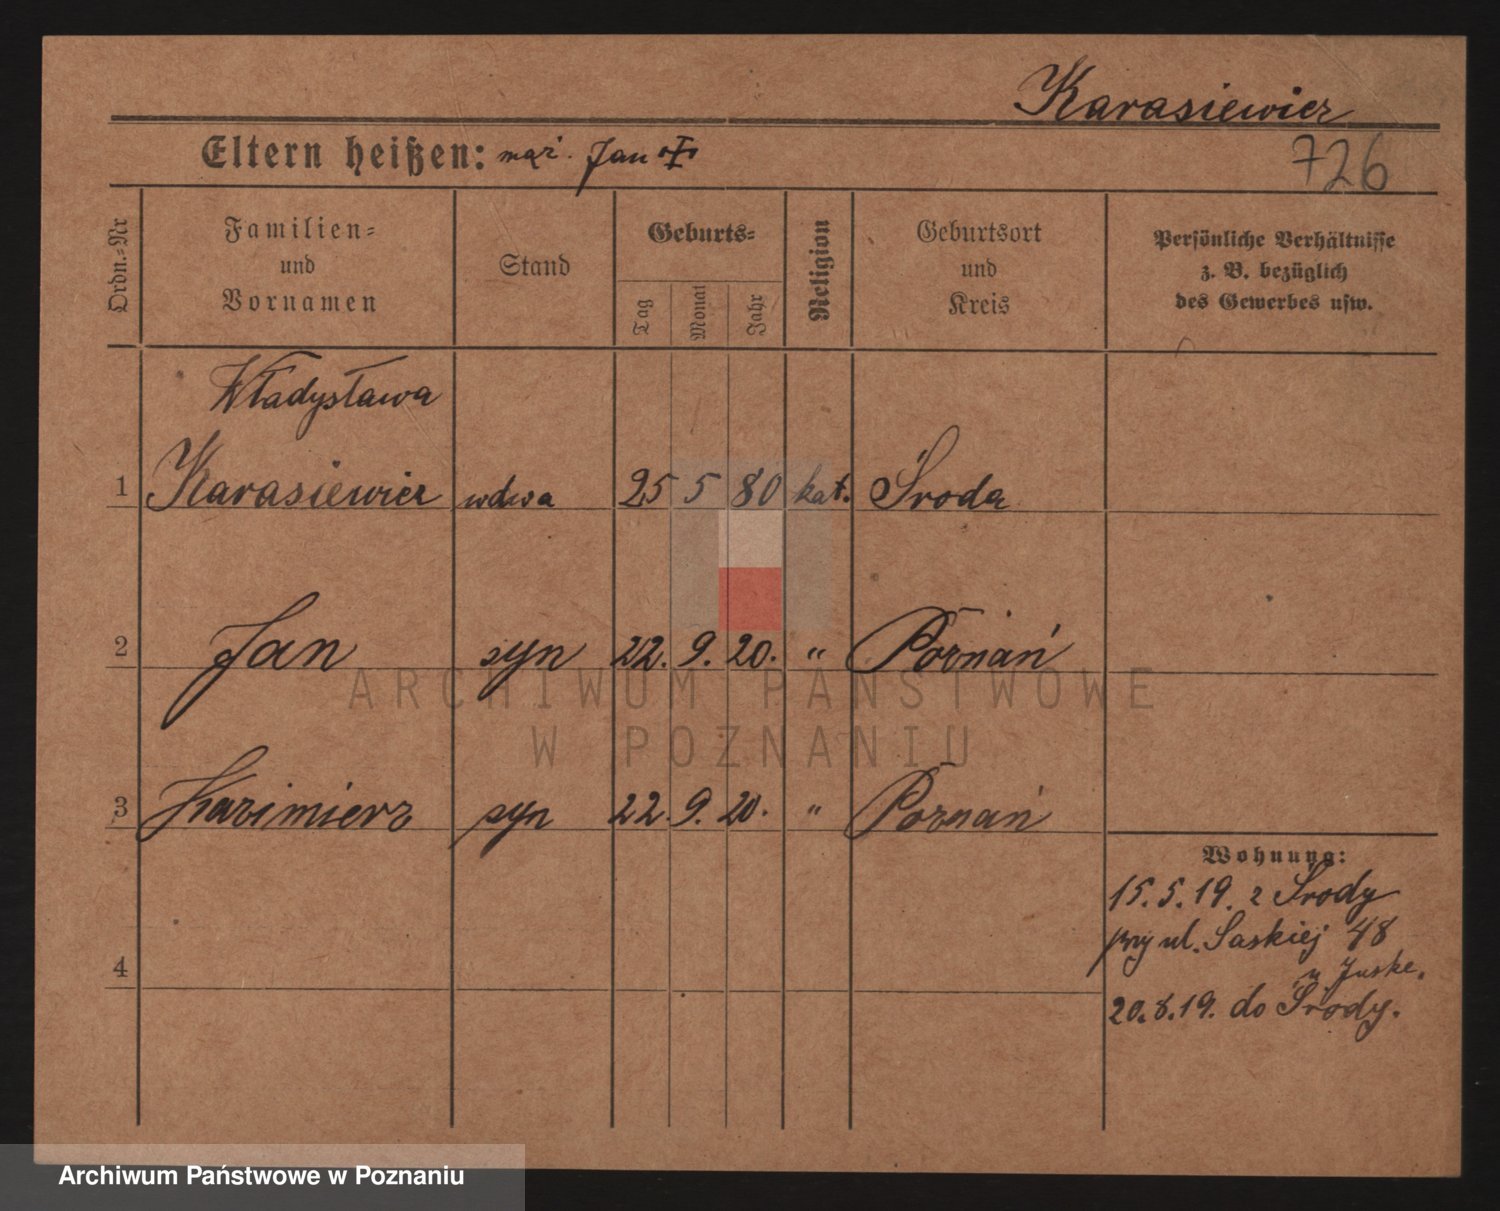 Karasiewicz
Eltern heißen: mąż. Jan
726
Ordn.-Nr
Familien-
und
Vornamen
Stand
Geburts-
Tag
Monat
Jahr
Religion
Geburtsort
und
Kreis
Persönliche Verhältnisse
z. B. bezüglich
des Gewerbes usw.
Władysława
1 Karasiewicz wdwa 25 5 80 kat. Środa
2 Jan syn 22. 9. 20. " Poznań
3 Kazimierz syn 22. 9. 20. " Poznań
Wohnung:
15.5.19. z Środy
przy ul. Saskiej 48
u Juske.
4
20.8.19. do Środy.
ARCHIWUM PAŃSTWOWE
W POZNANIU
Archiwum Państwowe w Poznaniu